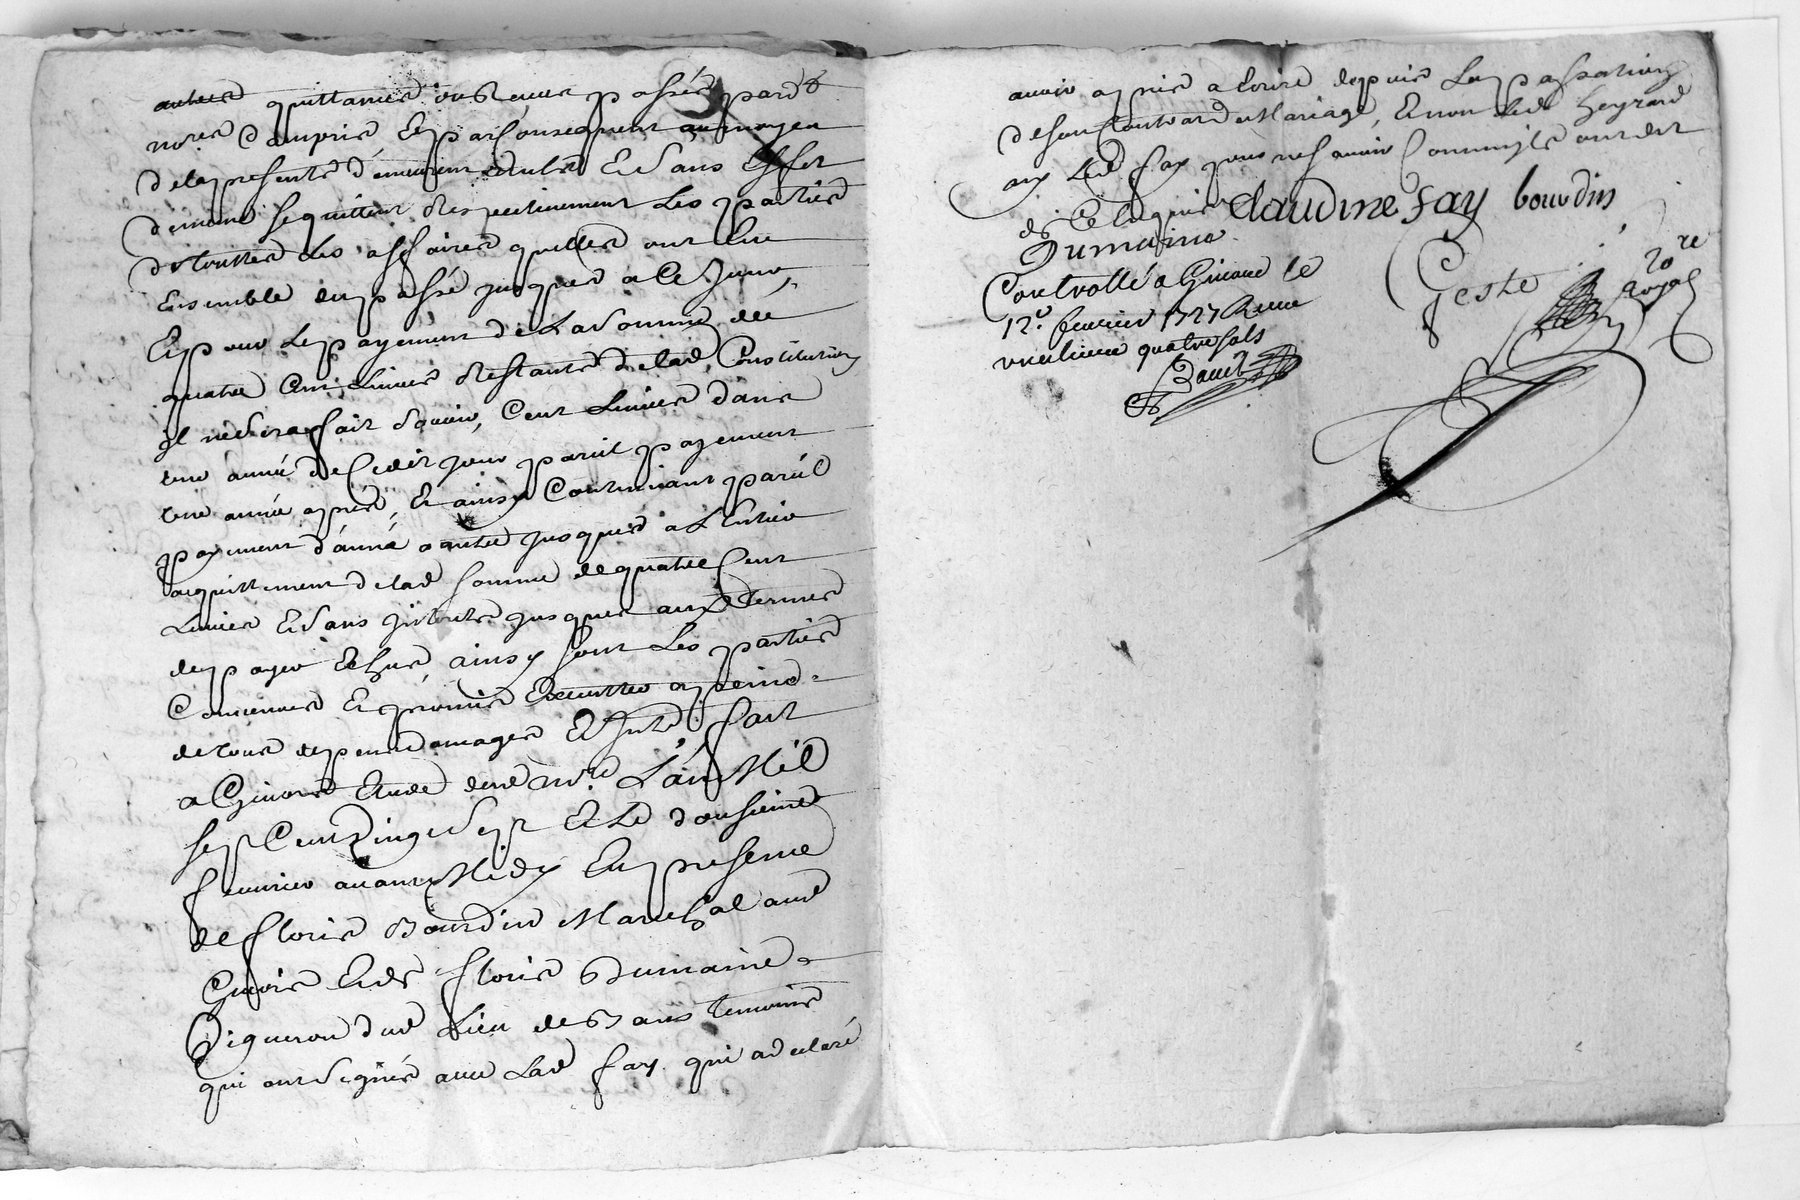 autres quittances ou reçus passés pard.t
no.res compris, Et par consequent au moyen
de la presente demeurent nuls Et sans Effet
dememe se quittent respectivement Les parties
de touttes Les affaires quelles ont Eu
Ensemble du passé jusques a Ce Jour,
Et pour Le payement de La somme de
quatre Cent Livres restante de lad. Constitution
Il se sera fait sçavoir, Cent Livres dans
une année de Cedit jour pareil payement
une année apres, Et ainsy Continuant pareil
payement d'année a autre jusques a L'entier
acquittement de lad somme de quatre Cent
Livres Et sans Interets jusques aux termes
de payer Echus, ainsy sont Les parties
Convenues Et promis Executter a peine
de tous depens damages Et Inter. fait
a Givors Etude dud no.re L'an Mil
sept Cent Vingt sept Et Le douzieme
fevrier avant Midy En presence
de floris Bourdin Marechal aud
Givors Et de floris Dumaine
Vigneron dud Lieu de Bans temoins
qui ont signés avec Lad fay qui a declaré
avoir apris a Ecrire depuis La passation
de son Contrat de Mariage, Et non led Heyrard
ny Led. fay pour ne sçavoir Comme ils ont dit
de Ce Enquis Claudine fay bourdin
Dumaine
Geste no.re Royal
Controllé a Givors le
12.e fevrier 1727 Reçu
vint quatre sols